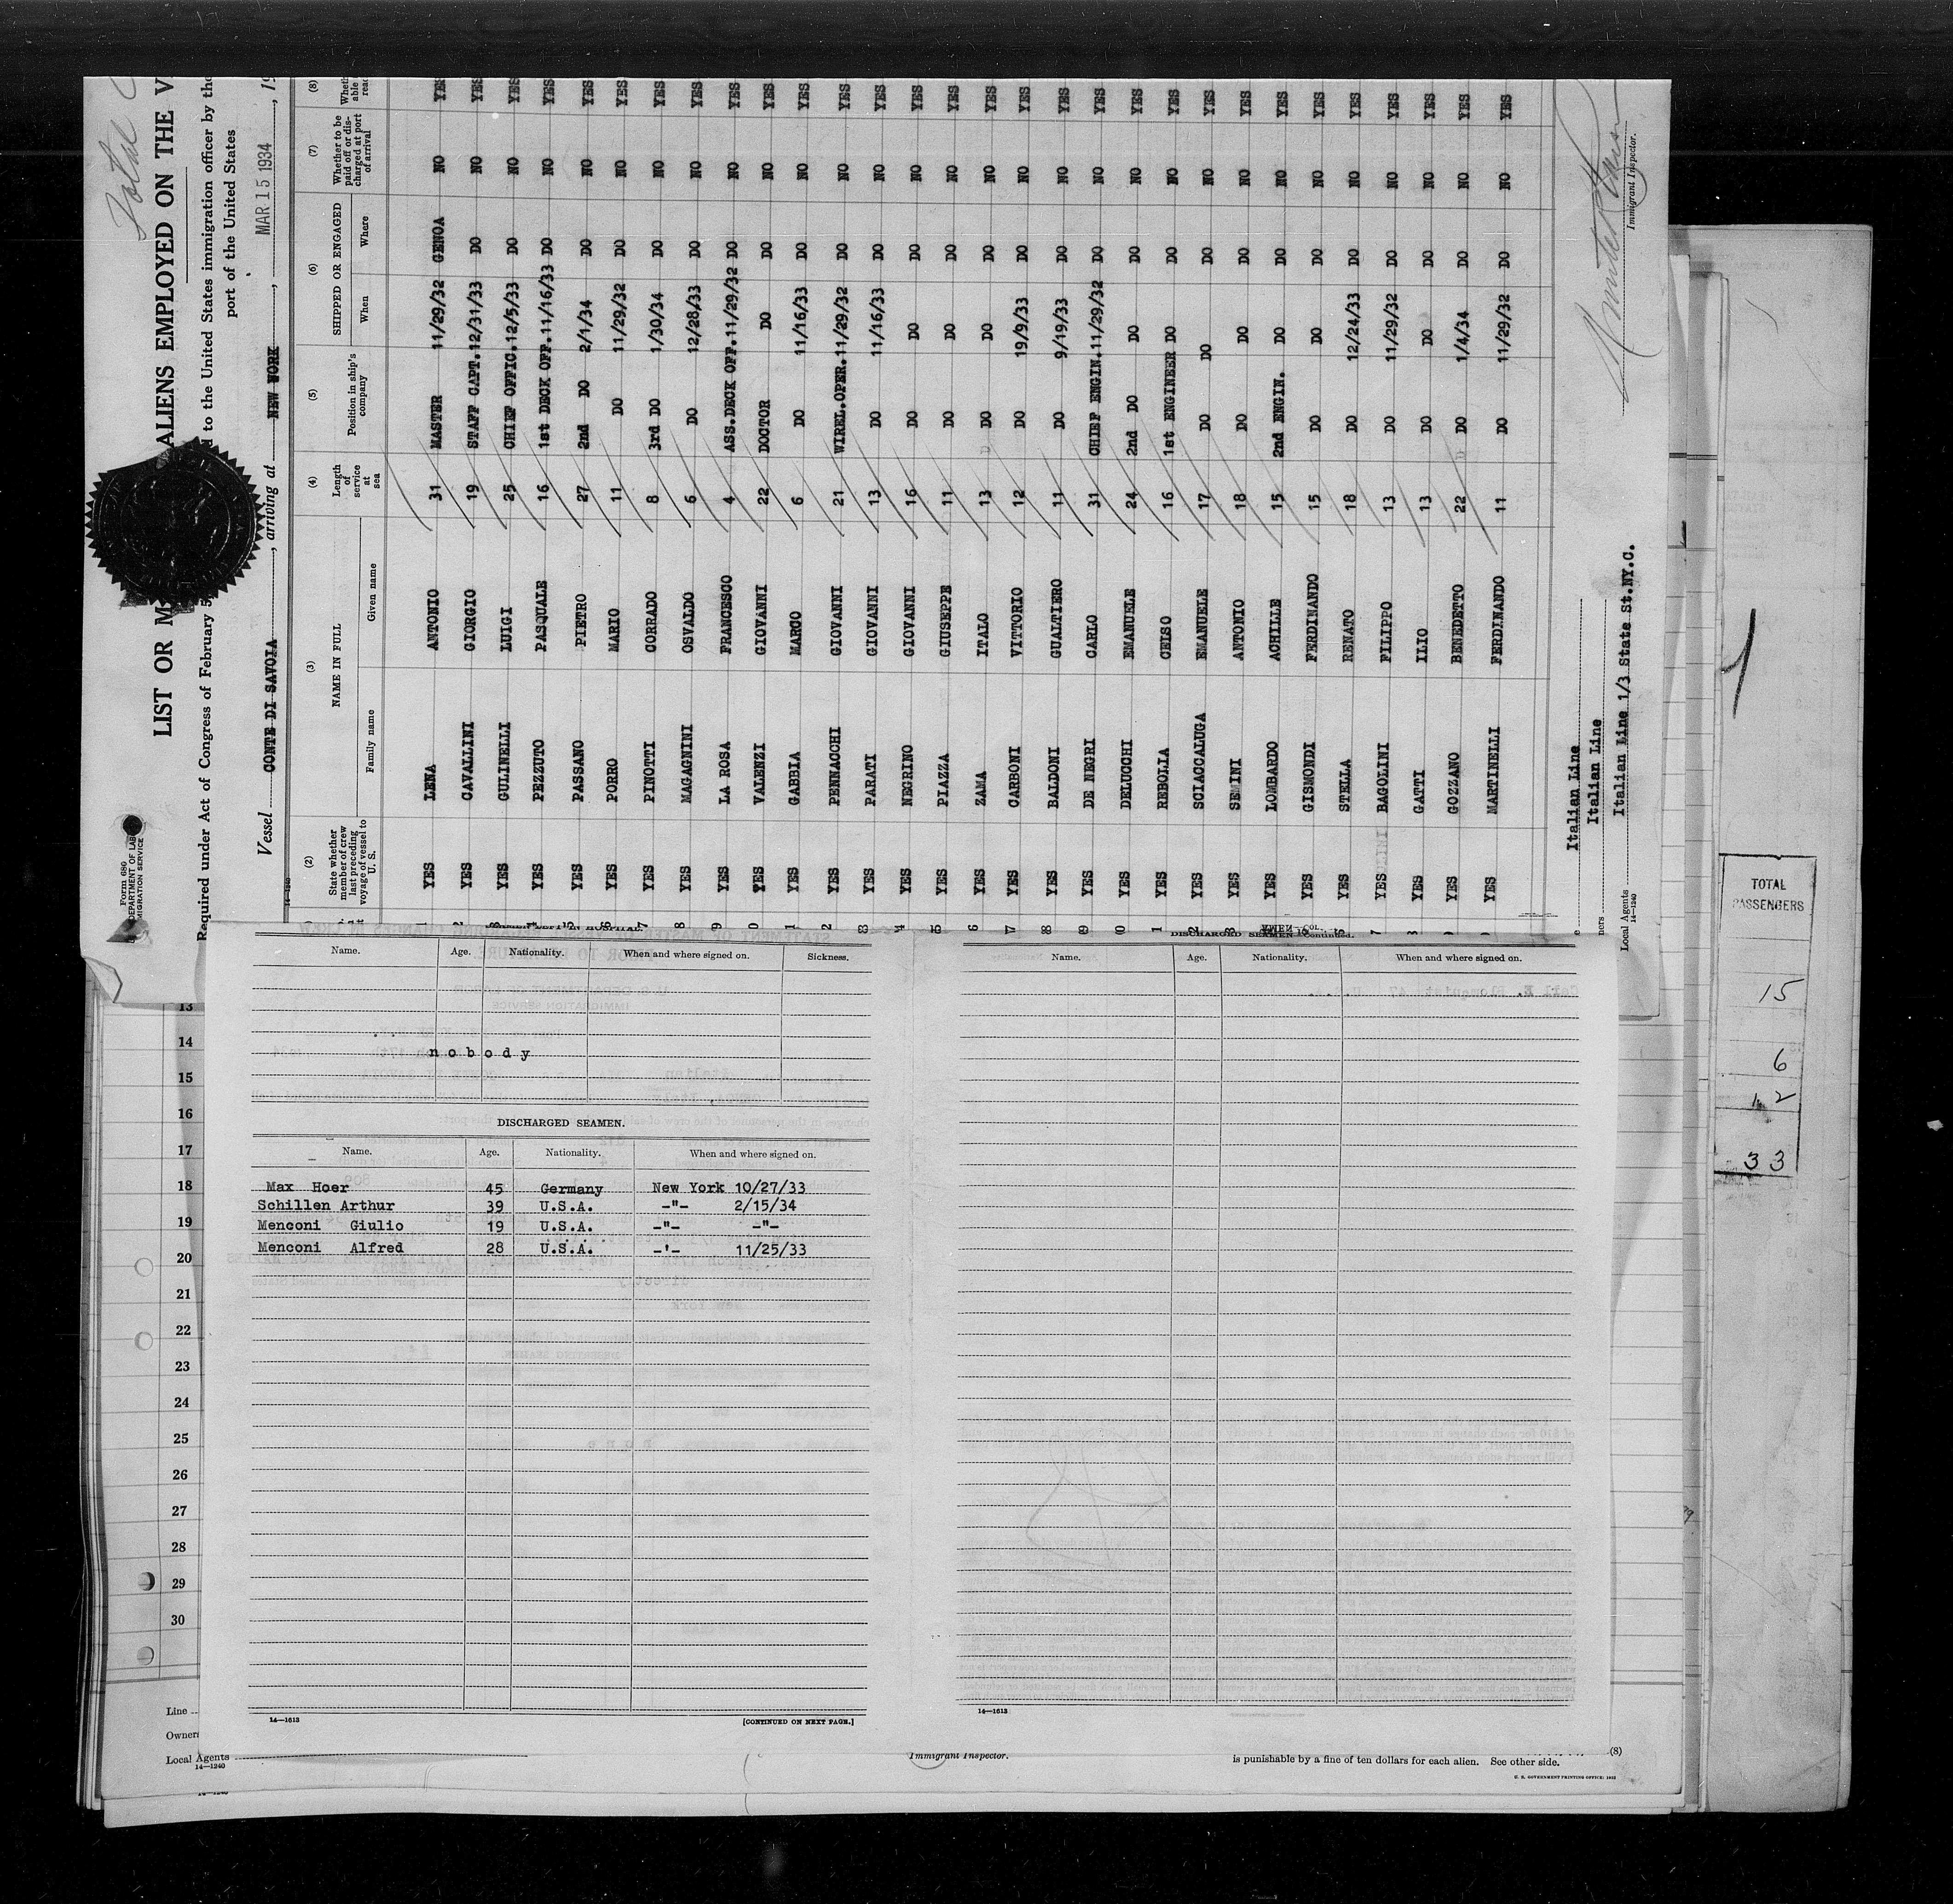 Form 686
MIGRATION SERVICE
Total
LIST OR
ALIENS EMPLOYED ON THE
Required under Act of Congress of February 5
to the United States immigration officer by the
port of the United States
Vessel CONTE DI SAVOIA, arriving at NEW WORK, MAR 15 1934, 19
(2) (3) (4) (5) (6) (7) (8)
State whether member of crew last preceding voyage of vessel to U. S. NAME IN FULL Length of service at sea Position in ship's company SHIPPED OR ENGAGED Whether to be paid off or discharged at port of arrival
Family name Given name When Where
YES LENA ANTONIO 31 MASTER 11/29/32 GENOA NO YES
YES CAVALLINI GIORGIO 19 STAFF CAPT. 12/31/33 DO NO YES
YES GULINELLI LUIGI 25 CHIEF OFFIC. 12/5/33 DO NO YES
YES PEZZUTO PASQUALE 16 1st DECK OFF. 11/16/33 DO NO YES
YES PASSANO PIETRO 27 2nd DO 2/1/34 DO NO YES
YES PORRO MARIO 11 DO 11/29/32 DO NO YES
YES PINOTTI CORRADO 8 3rd DO 1/30/34 DO NO YES
YES MAGAGNINI OSVALDO 6 DO 12/28/33 DO NO YES
YES LA ROSA FRANCESCO 4 ASS.DECK OFF. 11/29/32 DO NO YES
YES VALENZI GIOVANNI 22 DOCTOR DO DO NO YES
YES GABBIA MARCO 6 DO 11/16/33 DO NO YES
YES PENNACCHI GIOVANNI 21 WIREL.OPER. 11/29/32 DO NO YES
YES PARATI GIOVANNI 13 DO 11/16/33 DO NO YES
YES NEGRINO GIOVANNI 16 DO DO DO NO YES
YES PIAZZA GIUSEPPE 11 DO DO DO NO YES
YES ZAMA ITALO 13 DO DO DO NO YES
YES CARBONI VITTORIO 12 DO 19/9/33 DO NO YES
YES BALDONI GUALTIERO 11 DO 9/19/33 DO NO YES
YES DE NEGRI CARLO 31 CHIEF ENGIN. 11/29/32 DO NO YES
YES DELUCCHI EMANUELE 24 2nd DO DO DO NO YES
YES REBOLIA CEISO 16 1st ENGINEER DO DO NO YES
YES SCIACCALUGA EMANUELE 17 DO DO DO NO YES
YES SEMINI ANTONIO 18 DO DO DO NO YES
YES LOMBARDO ACHILLE 15 2nd ENGIN. DO DO NO YES
YES GISMONDI FERDINANDO 15 DO DO DO NO YES
YES STELLA RENATO 18 DO 12/24/33 DO NO YES
YES BAGOLINI FILIPPO 13 DO 11/29/32 DO NO YES
YES GATTI ILIO 13 DO DO DO NO YES
YES GOZZANO BENEDETTO 22 DO 1/4/34 DO NO YES
YES MARTINELLI FERDINANDO 11 DO 11/29/32 DO NO YES
Italian Line
Italian Line
Local Agents Italian Line 1/3 State St.NY.C.
14—1240
Immigrant Inspector.
TOTAL
PASSENGERS
15
6
12
33
Name. Age. Nationality. When and where signed on. Sickness.
nobody
DISCHARGED SEAMEN.
Name. Age. Nationality. When and where signed on.
Max Hoer 45 Germany New York 10/27/33
Schillen Arthur 39 U.S.A. -"- 2/15/34
Menconi Giulio 19 U.S.A. -"- -"-
Menconi Alfred 28 U.S.A. -'- 11/25/33
14—1613
[CONTINUED ON NEXT PAGE.]
DISCHARGED SEAMEN—Continued.
Name. Age. Nationality. When and where signed on.
14—1613
13
14
15
16
17
18
19
20
21
22
23
24
25
26
27
28
29
30
Line
Owners
Local Agents
14—1240
Immigrant Inspector.
is punishable by a fine of ten dollars for each alien. See other side.
(8)
U. S. GOVERNMENT PRINTING OFFICE: 1932